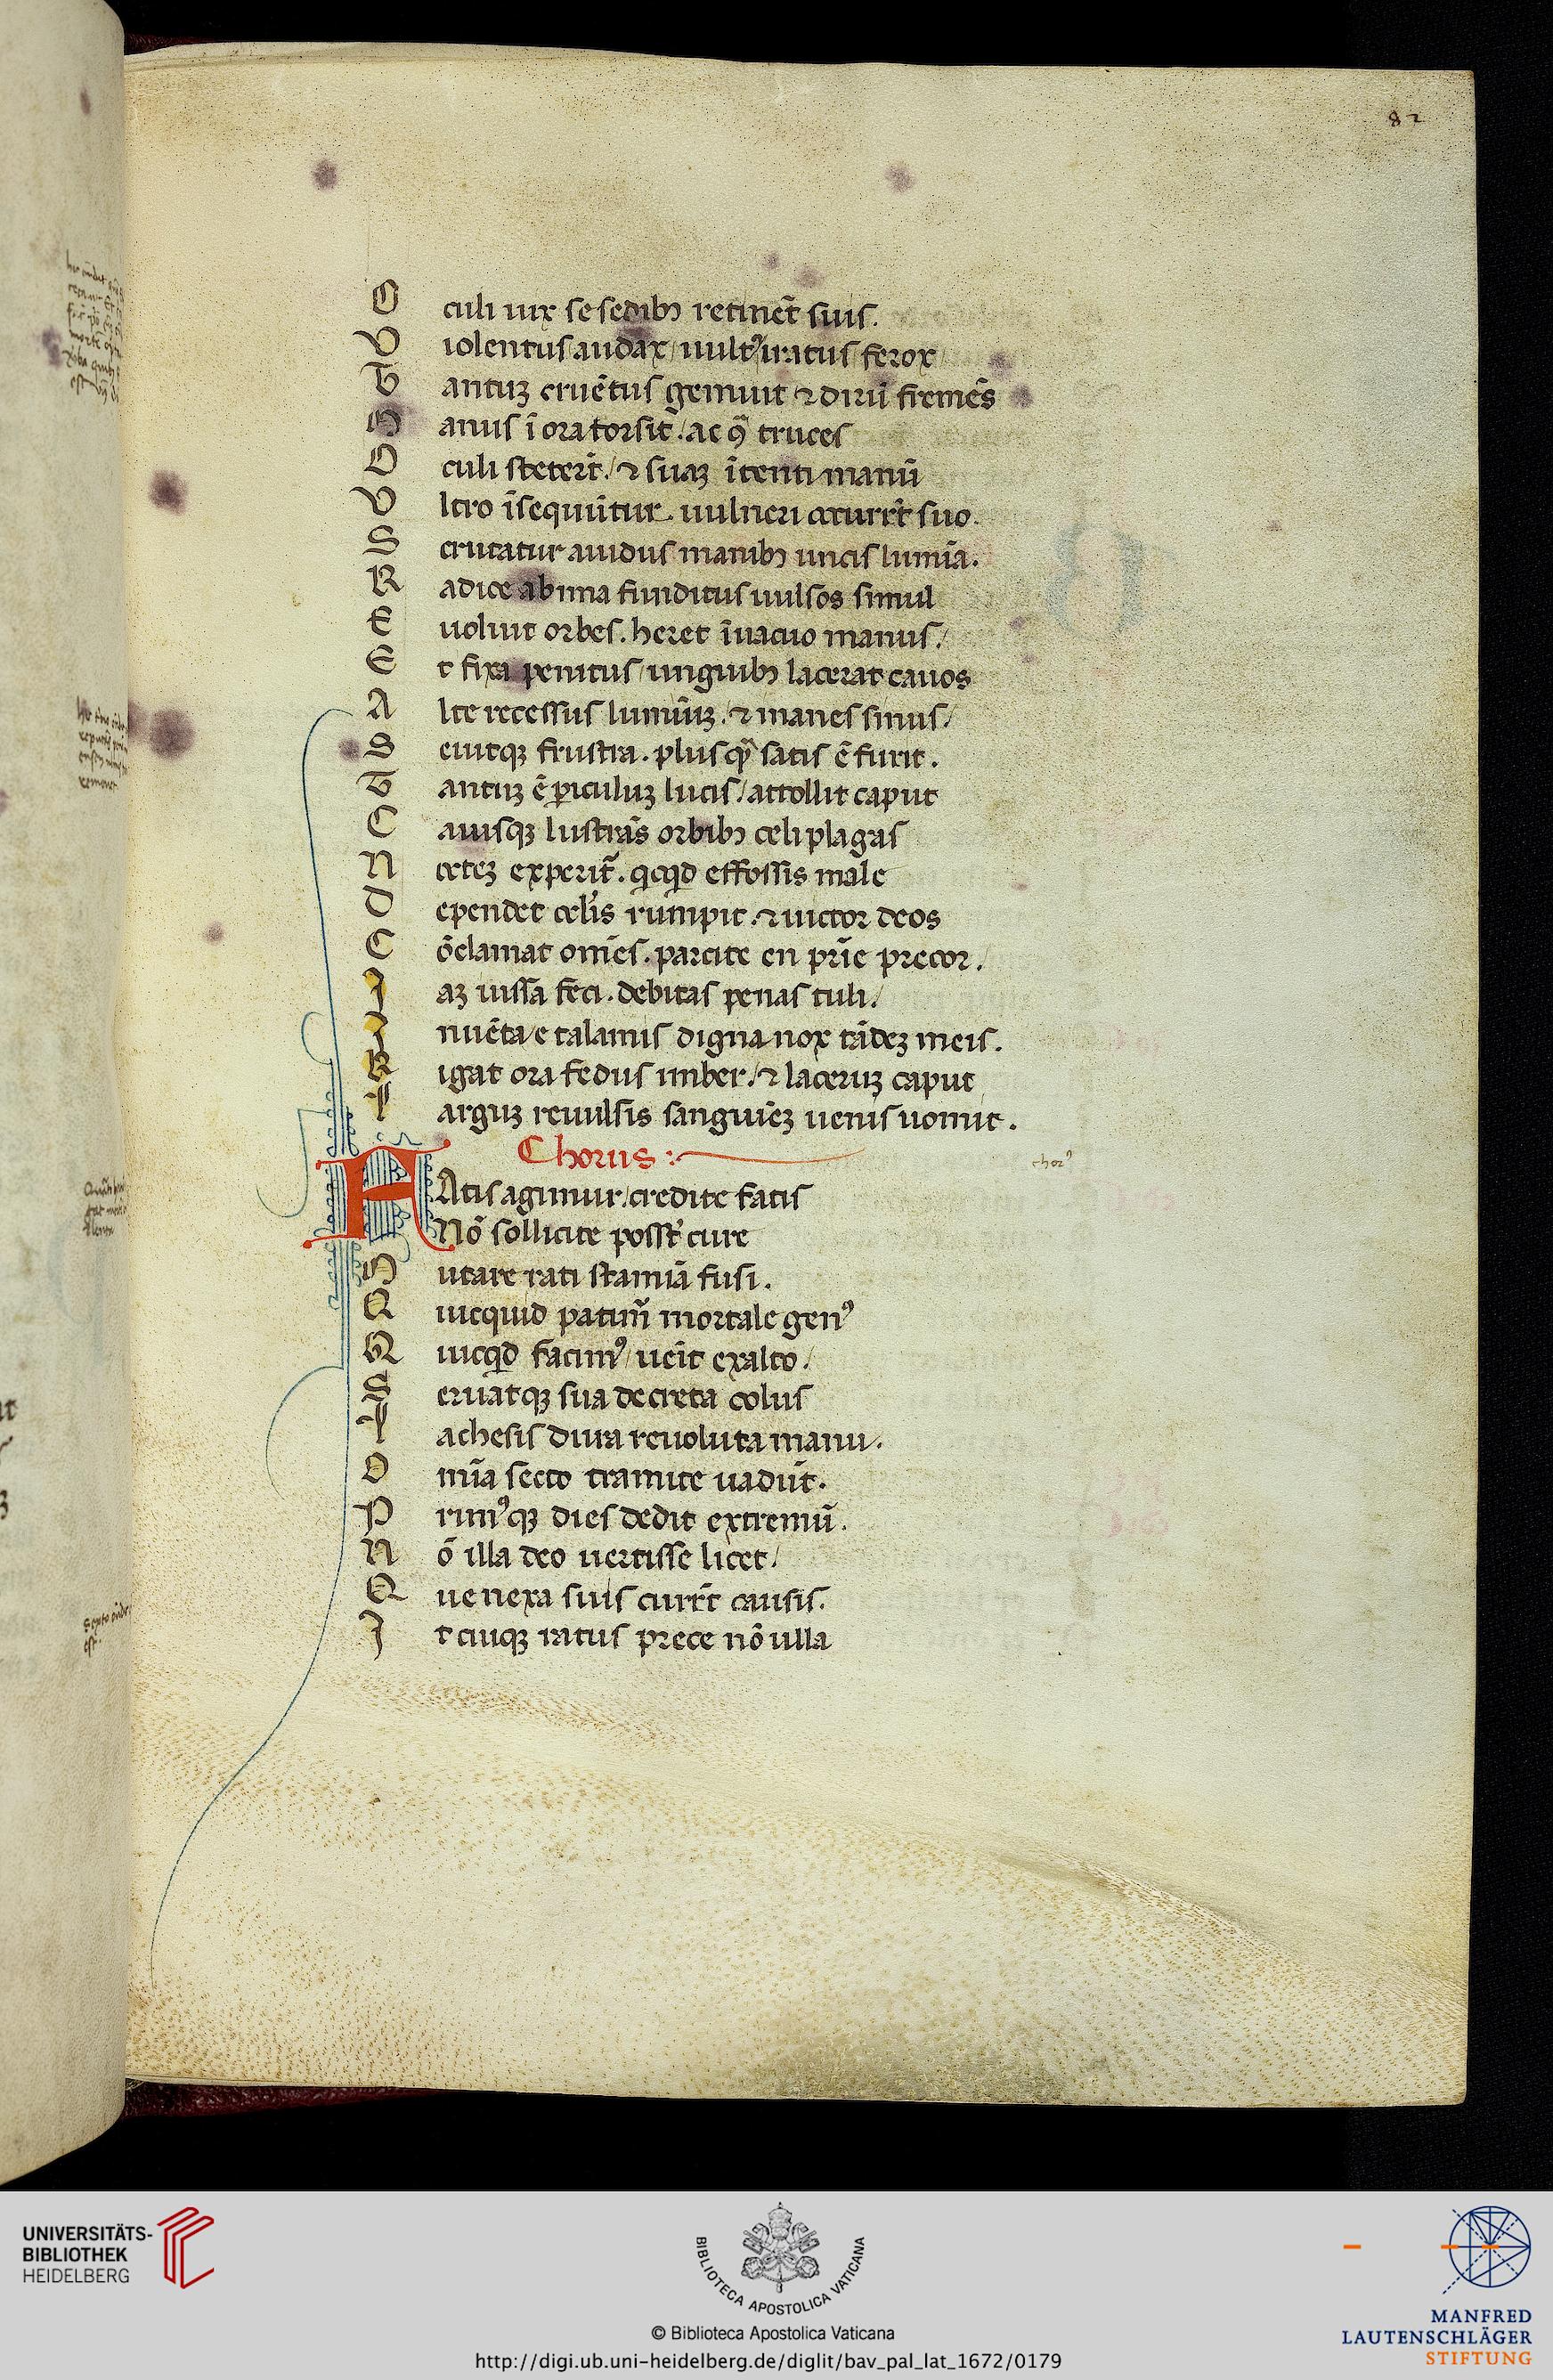 82
O culi uix se sedibꝫ retinēt suis.
V iolentus audax / uultꝰ iratus ferox
T antuꝫ cruētus gemuit ⁊ dirū fremēs
M anus ī ora torsit. / ac ꝯ̄ truces
O culi steterūt. / ⁊ suaꝫ ītenti manū
V ltro īsequūtur. uulneri occurrūt suo.
S crutatur auidus manibꝫ uncis lumīa.
R adice ab ima funditus uulsos simul
E uoluit orbes. heret ī uacuo manus /
E t fixa penitus / unguibꝫ lacerat cauos
A lte recessus lumīuꝫ. ⁊ inanes sinus /
S euitqꝫ frustra. plus qᷓ satis ē furit.
T antuꝫ ē ꝑiculuꝫ lucis. / attollit caput
C auisqꝫ lustrās orbibꝫ celi plagas
N octeꝫ experit̄. qͥcqͥd effossis male
D ependet oclīs rumpit. ⁊ uictor deos
C ōclamat om̄es. parcite en pr̄ie precor.
I aꝫ iussa feci. debitas penas tuli. /
I nuēta / e talamis digna nox tādeꝫ meis.
R igat ora fedus imber. / ⁊ laceruꝫ caput
L arguꝫ reuulsis sanguīeꝫ uenis uomit.
Chorus :
chorꝰ
F Atis agimur. / credite fatis
Nō sollicite possūt cure
M utare rati stamīa fusi.
Q uicquid patim̄ mortale genꝰ
Q uicqͥd facimꝰ / ueīt ex alto. /
S eruātqꝫ sua decreta colus
L achesis dura reuoluta manu.
O mīa secto tramite uadūt.
P rimꝰqꝫ dies dedit extremū.
N ō illa deo uertisse licet. /
Q ue nexa suis currūt causis.
I t cuiqꝫ ratus prece nō ulla
UNIVERSITÄTS-
BIBLIOTHEK
HEIDELBERG
BIBLIOTECA APOSTOLICA VATICANA
© Biblioteca Apostolica Vaticana
http://digi.ub.uni-heidelberg.de/diglit/bav_pal_lat_1672/0179
MANFRED
LAUTENSCHLÄGER
STIFTUNG